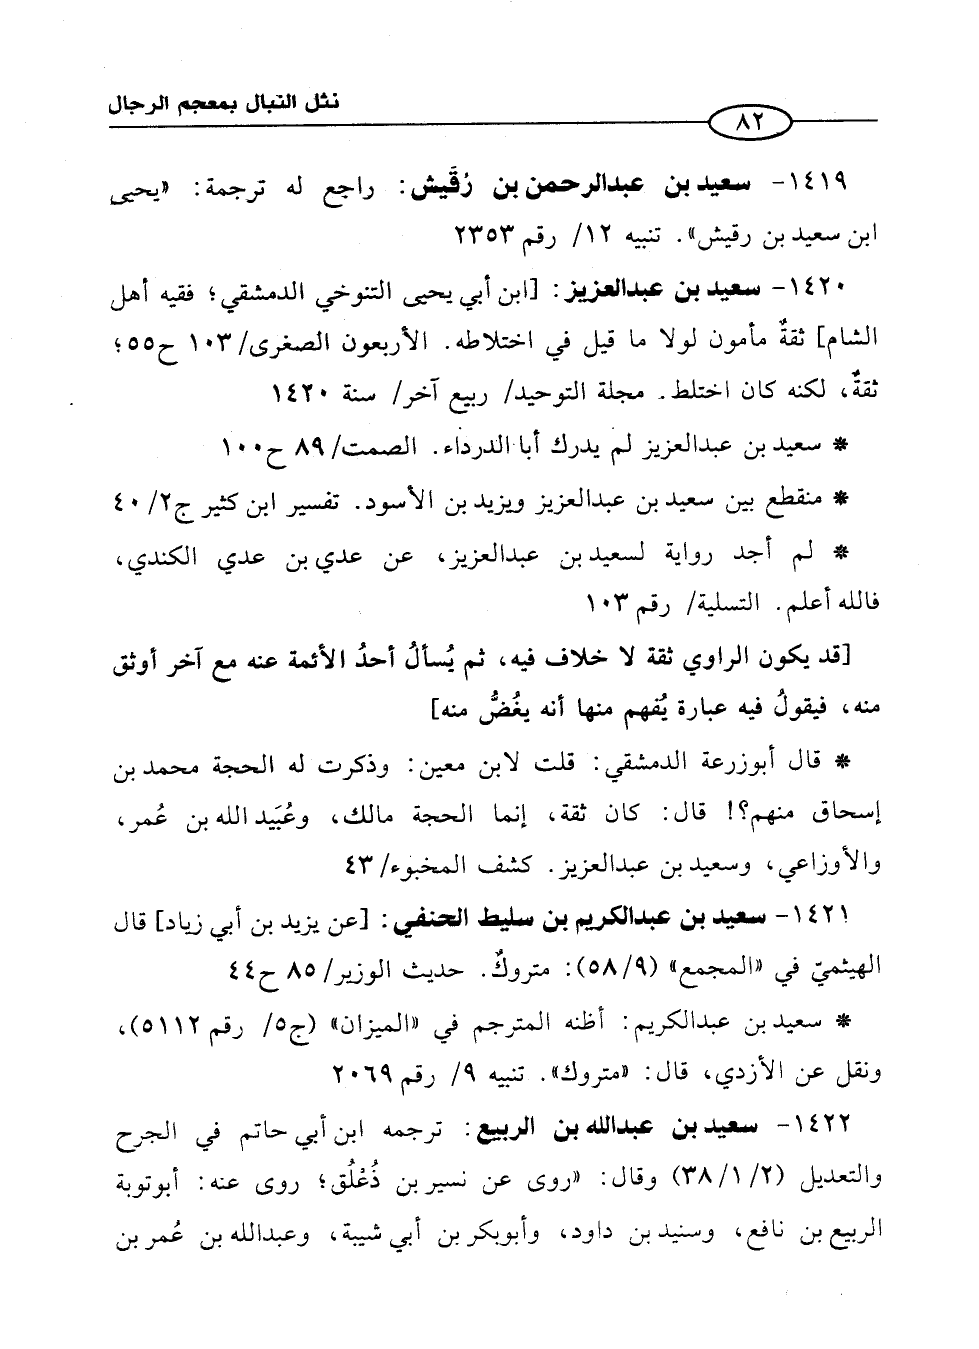 نثل النبال بمعجم الرجال
٨٢
١٤١٩- سعيد بن عبدالرحمن بن رُقَيش: راجع له ترجمة: «يحيى
ابن سعيد بن رقيش». تنبيه ١٢/ رقم ٢٣٥٣
١٤٢٠- سعيد بن عبدالعزيز: [ابن أبي يحيى التنوخي الدمشقي؛ فقيه أهل
الشام] ثقةٌ مأمون لولا ما قيل في اختلاطه. الأربعون الصغرى/ ١٠٣ ح٥٥؛
ثقةٌ، لكنه كان اختلط. مجلة التوحيد/ ربيع آخر/ سنة ١٤٢٠
* سعيد بن عبدالعزيز لم يدرك أبا الدرداء. الصمت/ ٨٩ ح١٠٠
* منقطع بين سعيد بن عبدالعزيز ويزيد بن الأسود. تفسير ابن كثير ج٢/ ٤٠
* لم أجد رواية لسعيد بن عبدالعزيز، عن عدي بن عدي الكندي،
فالله أعلم. التسلية/ رقم ١٠٣
[قد يكون الراوي ثقة لا خلاف فيه، ثم يُسألُ أحدُ الأئمة عنه مع آخر أوثق
منه، فيقولُ فيه عبارة يُفهم منها أنه يغُضُّ منه]
* قال أبوزرعة الدمشقي: قلت لابن معين: وذكرت له الحجة محمد بن
إسحاق منهم؟! قال: كان ثقة، إنما الحجة مالك، وعُبَيد الله بن عُمر،
والأوزاعي، وسعيد بن عبدالعزيز. كشف المخبوء/ ٤٣
١٤٢١- سعيد بن عبدالكريم بن سليط الحنفي: [عن يزيد بن أبي زياد] قال
الهيثميّ في «المجمع» (٥٨/٩): متروكٌ. حديث الوزير/ ٨٥ ح٤٤
* سعيد بن عبدالكريم: أظنه المترجم في «الميزان» (ج٥/ رقم ٥١١٢)،
ونقل عن الأزدي، قال: «متروك». تنبيه ٩/ رقم ٢٠٦٩
١٤٢٢- سعيد بن عبدالله بن الربيع: ترجمه ابن أبي حاتم في الجرح
والتعديل (٣٨/١/٢) وقال: «روى عن نسير بن ذُعْلُق؛ روى عنه: أبوتوبة
الربيع بن نافع، وسنيد بن داود، وأبوبكر بن أبي شيبة، وعبدالله بن عُمر بن